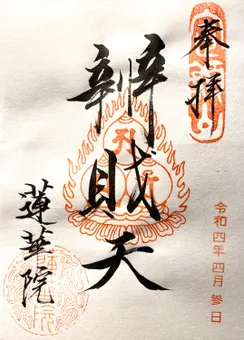 奉拝
令和四年四月参日
辨財天
蓮華院